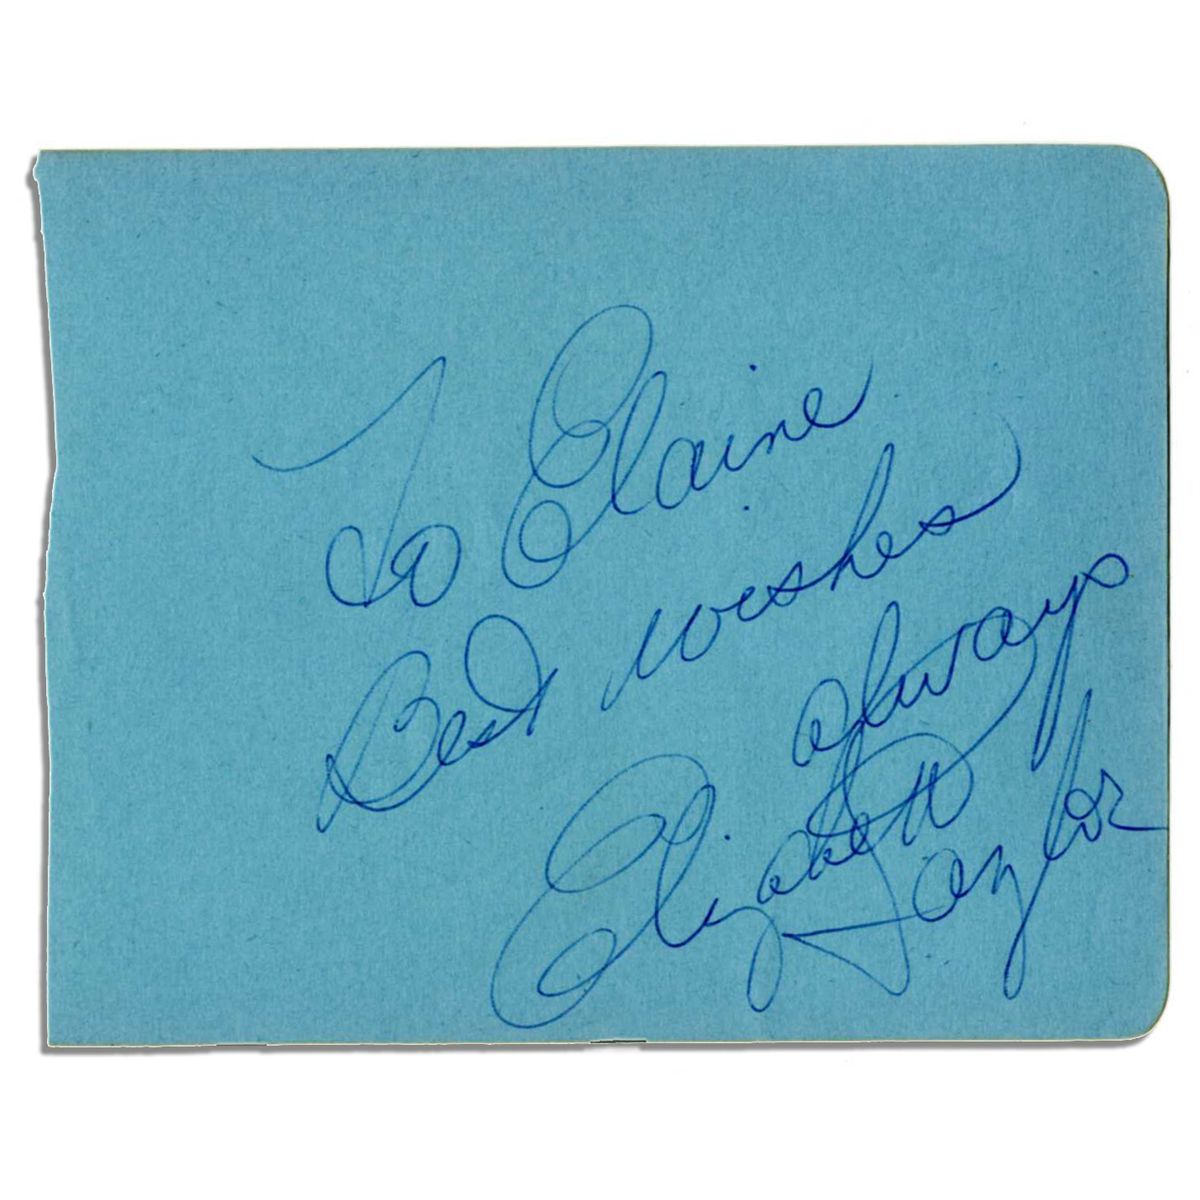 To Elaine
Best wishes
always
Elizabeth
Taylor